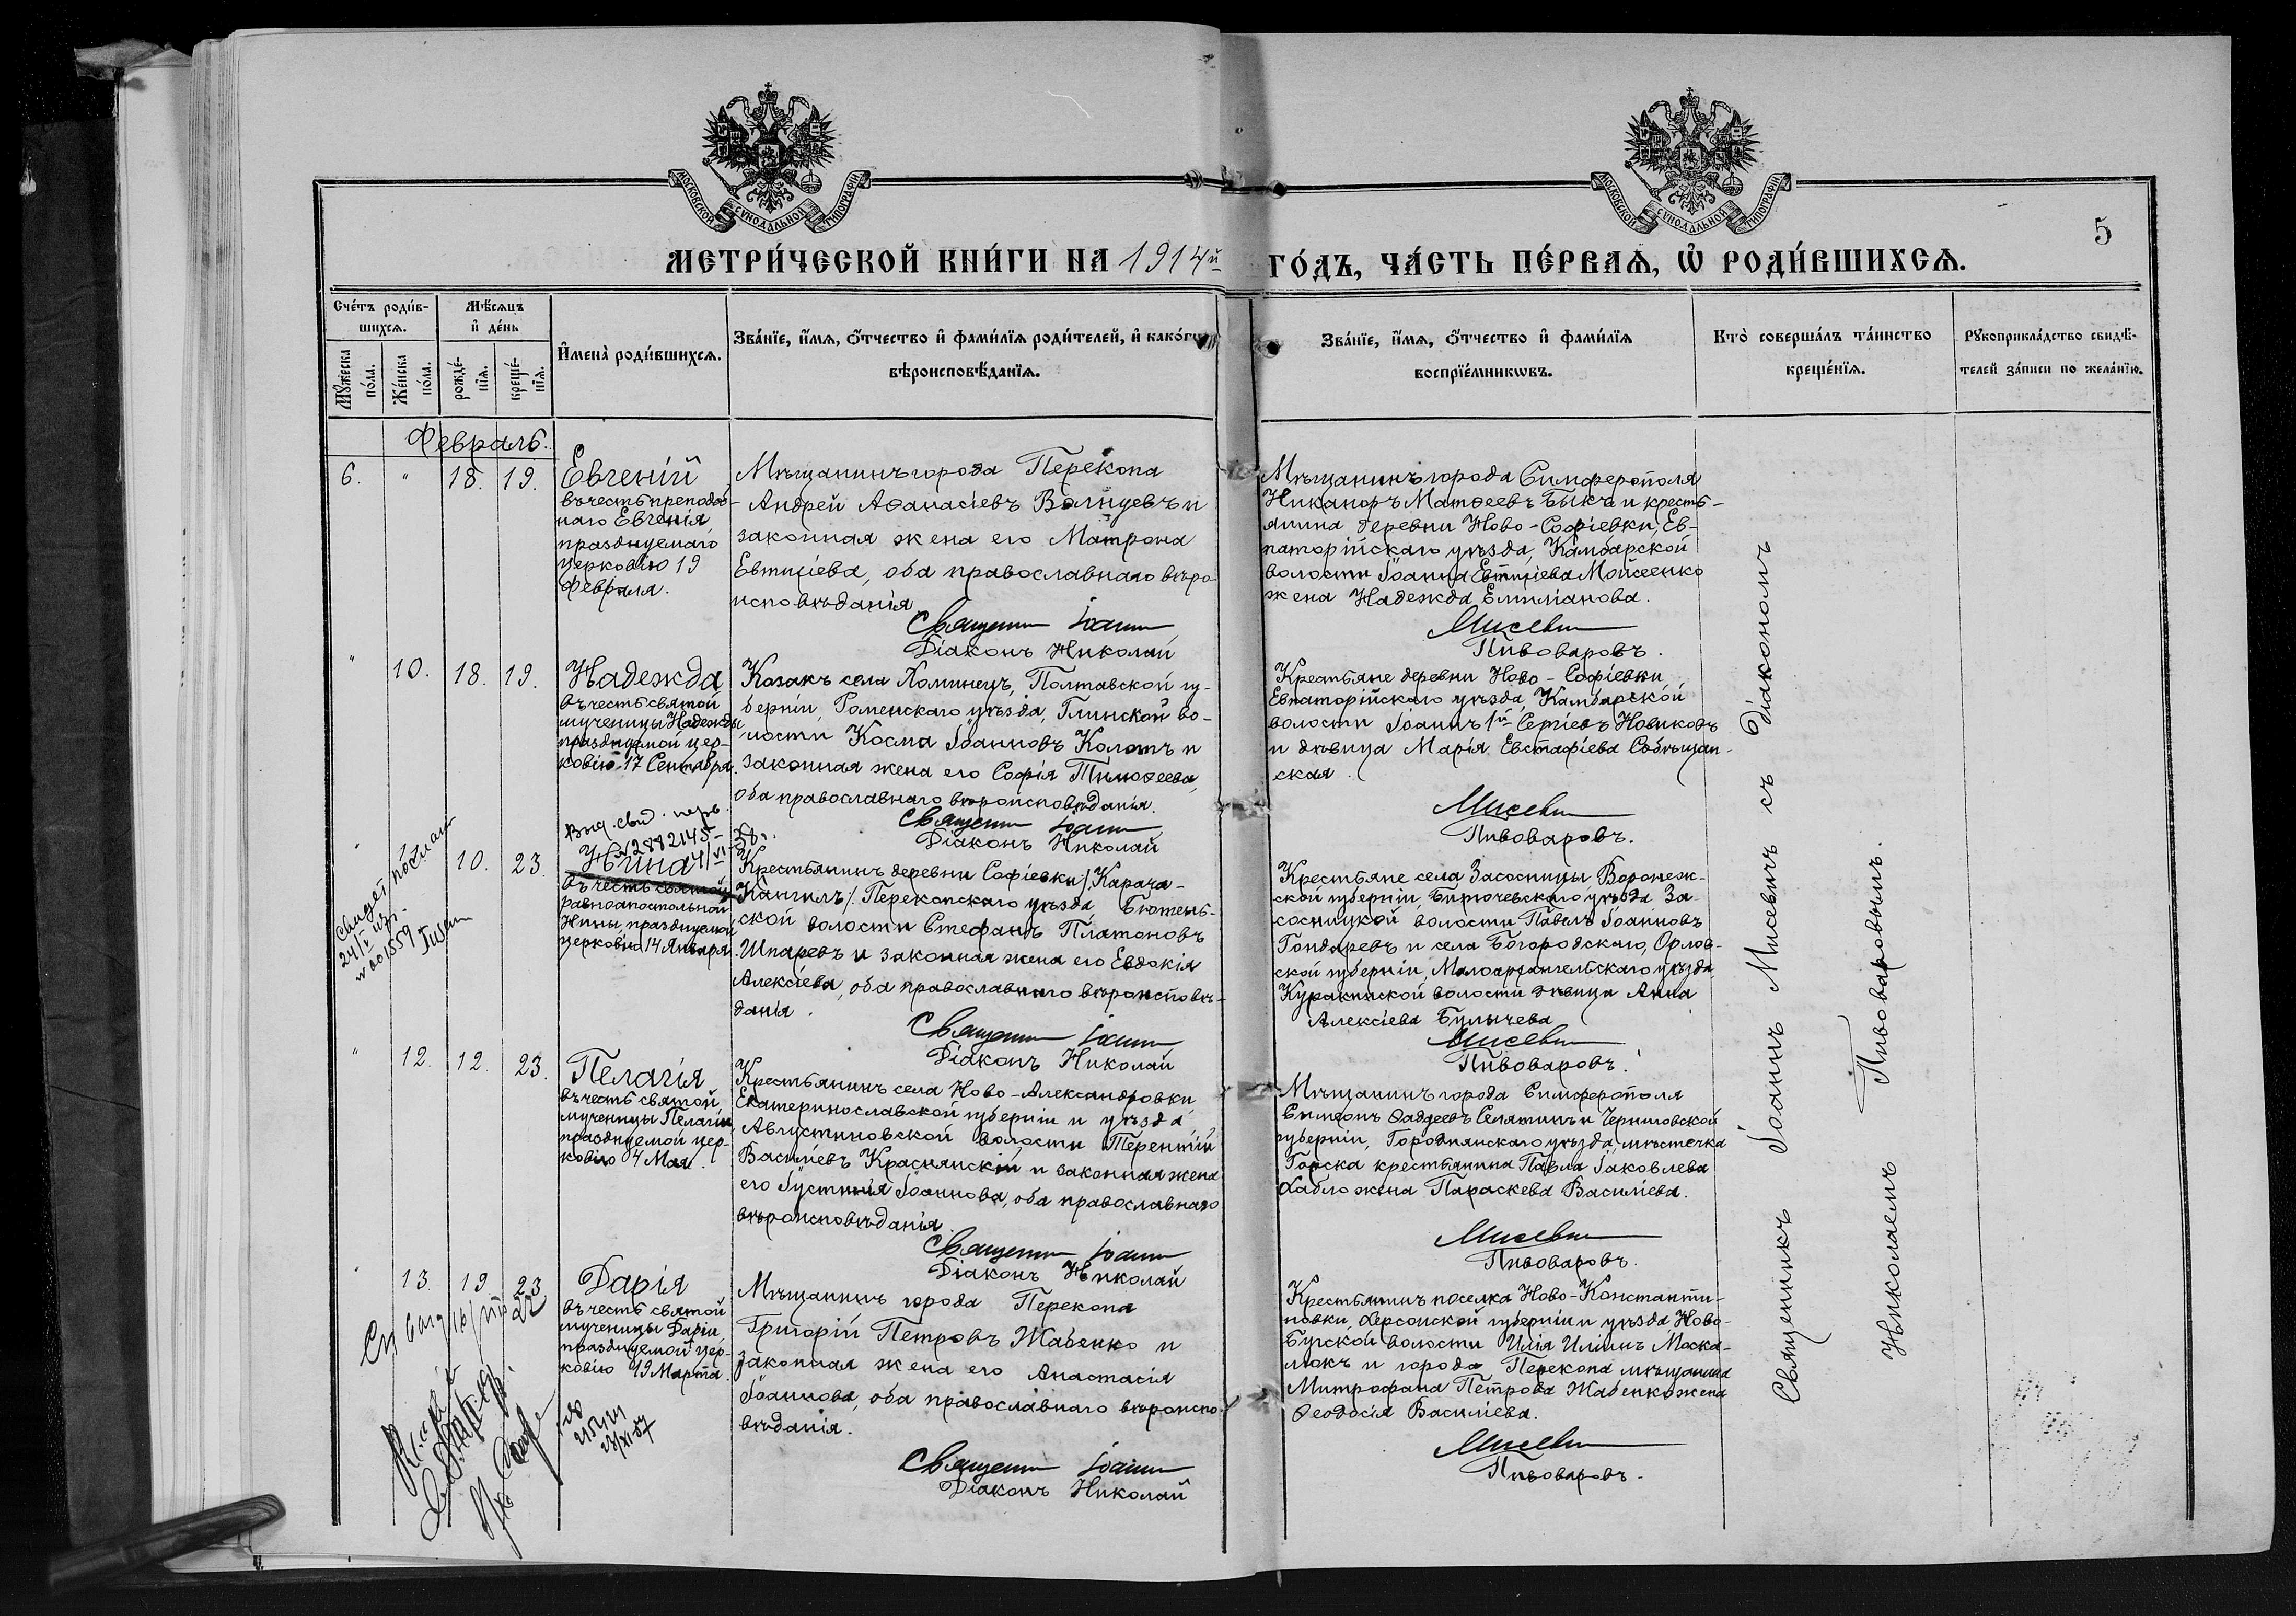 МОСКОВСКОЙ СѴНОДАЛЬНОЙ ТИПОГРАФІИ
МОСКОВСКОЙ СѴНОДАЛЬНОЙ ТИПОГРАФІИ
5
МЕТРИ́ЧЕСКОЙ КНИ́ГИ НА 1914й ГО́ДЪ, ЧА́СТЬ ПЕ́РВАѦ, Ѡ РОДИ́ВШИХСѦ.
Сче́тъ роди́в-
шихсѧ.
Мꙋ́жеска по́ла.
Же́нска по́ла.
Мѣ́сѧцъ
и҆ де́нь
рожде́-
нїѧ.
креще́-
нїѧ.
И҆мена̀ роди́вшихсѧ.
Зва́нїе, и҆́мѧ, ѻ҆́тчество и҆ фами́лїѧ роди́телей, и҆ како́гѡ
вѣроисповѣ́данїѧ.
Зва́нїе, и҆́мѧ, ѻ҆́тчество и҆ фами́лїѧ
воспрїе́мникѡвъ.
Кто̀ соверша́лъ та́инство
креще́нїѧ.
Рꙋкоприкла́дство свидѣ́-
телей за́писи по жела́нїю.
Февраль.
6. " 18. 19.
Евгеній
въ честь преподоб-
наго Евгенія,
празднуемаго
церковію 19
Февраля.
Мѣщанинъ города Перекопа
Андрей Аѳанасіевъ Волнцевъ и
законная жена его Матрона
Евтихіева, оба православнаго вѣро-
исповѣданія
Священникъ Іоаннъ
Діаконъ Николай
Мѣщанинъ города Симферополя
Никаноръ Матѳеевъ Быкъ и кресть-
янина деревни Ново-Софіевки, Ев-
паторійскаго уѣзда, Камбарской
волости Іоанна Евтихіева Мойсеенко
жена Надежда Емиліанова.
Мисевичъ
Пивоваровъ.
" 10. 18. 19.
Надежда
въ честь святой
мученицы Надежды,
празднуемой цер-
ковію 17 Сентября.
Козакъ села Хоминецъ, Полтавской гу-
берніи, Роменскаго уѣзда, Глинской во-
лости Косма Іоанновъ Колотъ и
законная жена его Софія Тимоѳеева,
оба православнаго вѣроисповѣданія.
Священникъ Іоаннъ
Діаконъ Николай
Крестьяне деревни Ново-Софіевки
Евпаторійскаго уѣзда, Камбарской
волости Іоаннъ 1й Сергіевъ Новиковъ
и дѣвица Марія Евстафіева Собѣщан-
ская.
Мисевичъ
Пивоваровъ.
Выд. свид.
N2882145
" 11. 10. 23.
Нина
въ честь святой
равноапостольной
Нины, празднуемой
церковію 14 Января.
Крестьянинъ деревни Софіевки /Карача-
Кангилъ/ Перекопскаго уѣзда, Бютень-
ской волости Стефанъ Платоновъ
Шпаревъ и законная жена его Евдокія
Алексіева, оба православнаго вѣроисповѣ-
данія.
Священникъ Іоаннъ
Діаконъ Николай
Крестьяне села Засосницы Воронеж-
ской губерніи, Бирючевскаго уѣзда За-
сосницкой волости Павелъ Іоанновъ
Гондаревъ и села Богородскаго, Орлов-
ской губерніи, Малоархангельскаго уѣзда,
Куракинской волости дѣвица Анна
Алексіева Булычева
Мисевичъ
Пивоваровъ.
" 12. 12. 23.
Пелагія
въ честь святой
мученицы Пелагіи,
празднуемой цер-
ковію 4 Мая.
Крестьянинъ села Ново-Александровки,
Екатеринославской губерніи и уѣзда,
Августиновской волости Терентій
Василіевъ Краснянскій и законная жена
его Іустинія Іоаннова, оба православнаго
вѣроисповѣданія
Священникъ Іоаннъ
Діаконъ Николай
Мѣщанинъ города Симферополя
Симеонъ Ѳаддеевъ Селятинъ и Черниговской
губерніи, Городнянскаго уѣзда, мѣстечка
Горска крестьянина Павла Іаковлева
Хабло жена Параскева Василіева.
Мисевичъ
Пивоваровъ.
13. 19. 23
Дарія
въ честь святой
мученицы Даріи,
празднуемой цер-
ковію 19 Марта.
Мѣщанинъ города Перекопа
Григорій Петровъ Жабенко и
законная жена его Анастасія
Іоаннова, оба православнаго вѣроиспо-
вѣданія.
Священникъ Іоаннъ
Діаконъ Николай
Крестьянинъ поселка Ново-Константи-
новки, Херсонской губерніи и уѣзда Ново-
Бугской волости Илія Иліинъ Моска-
люкъ и города Перекопа мѣщанина
Митрофана Петрова Жабенко жена
Ѳеодосія Василіева.
Мисевичъ
Пивоваровъ.
Священникъ Іоаннъ Мисевичъ съ діакономъ
Николаемъ Пивоваровымъ.